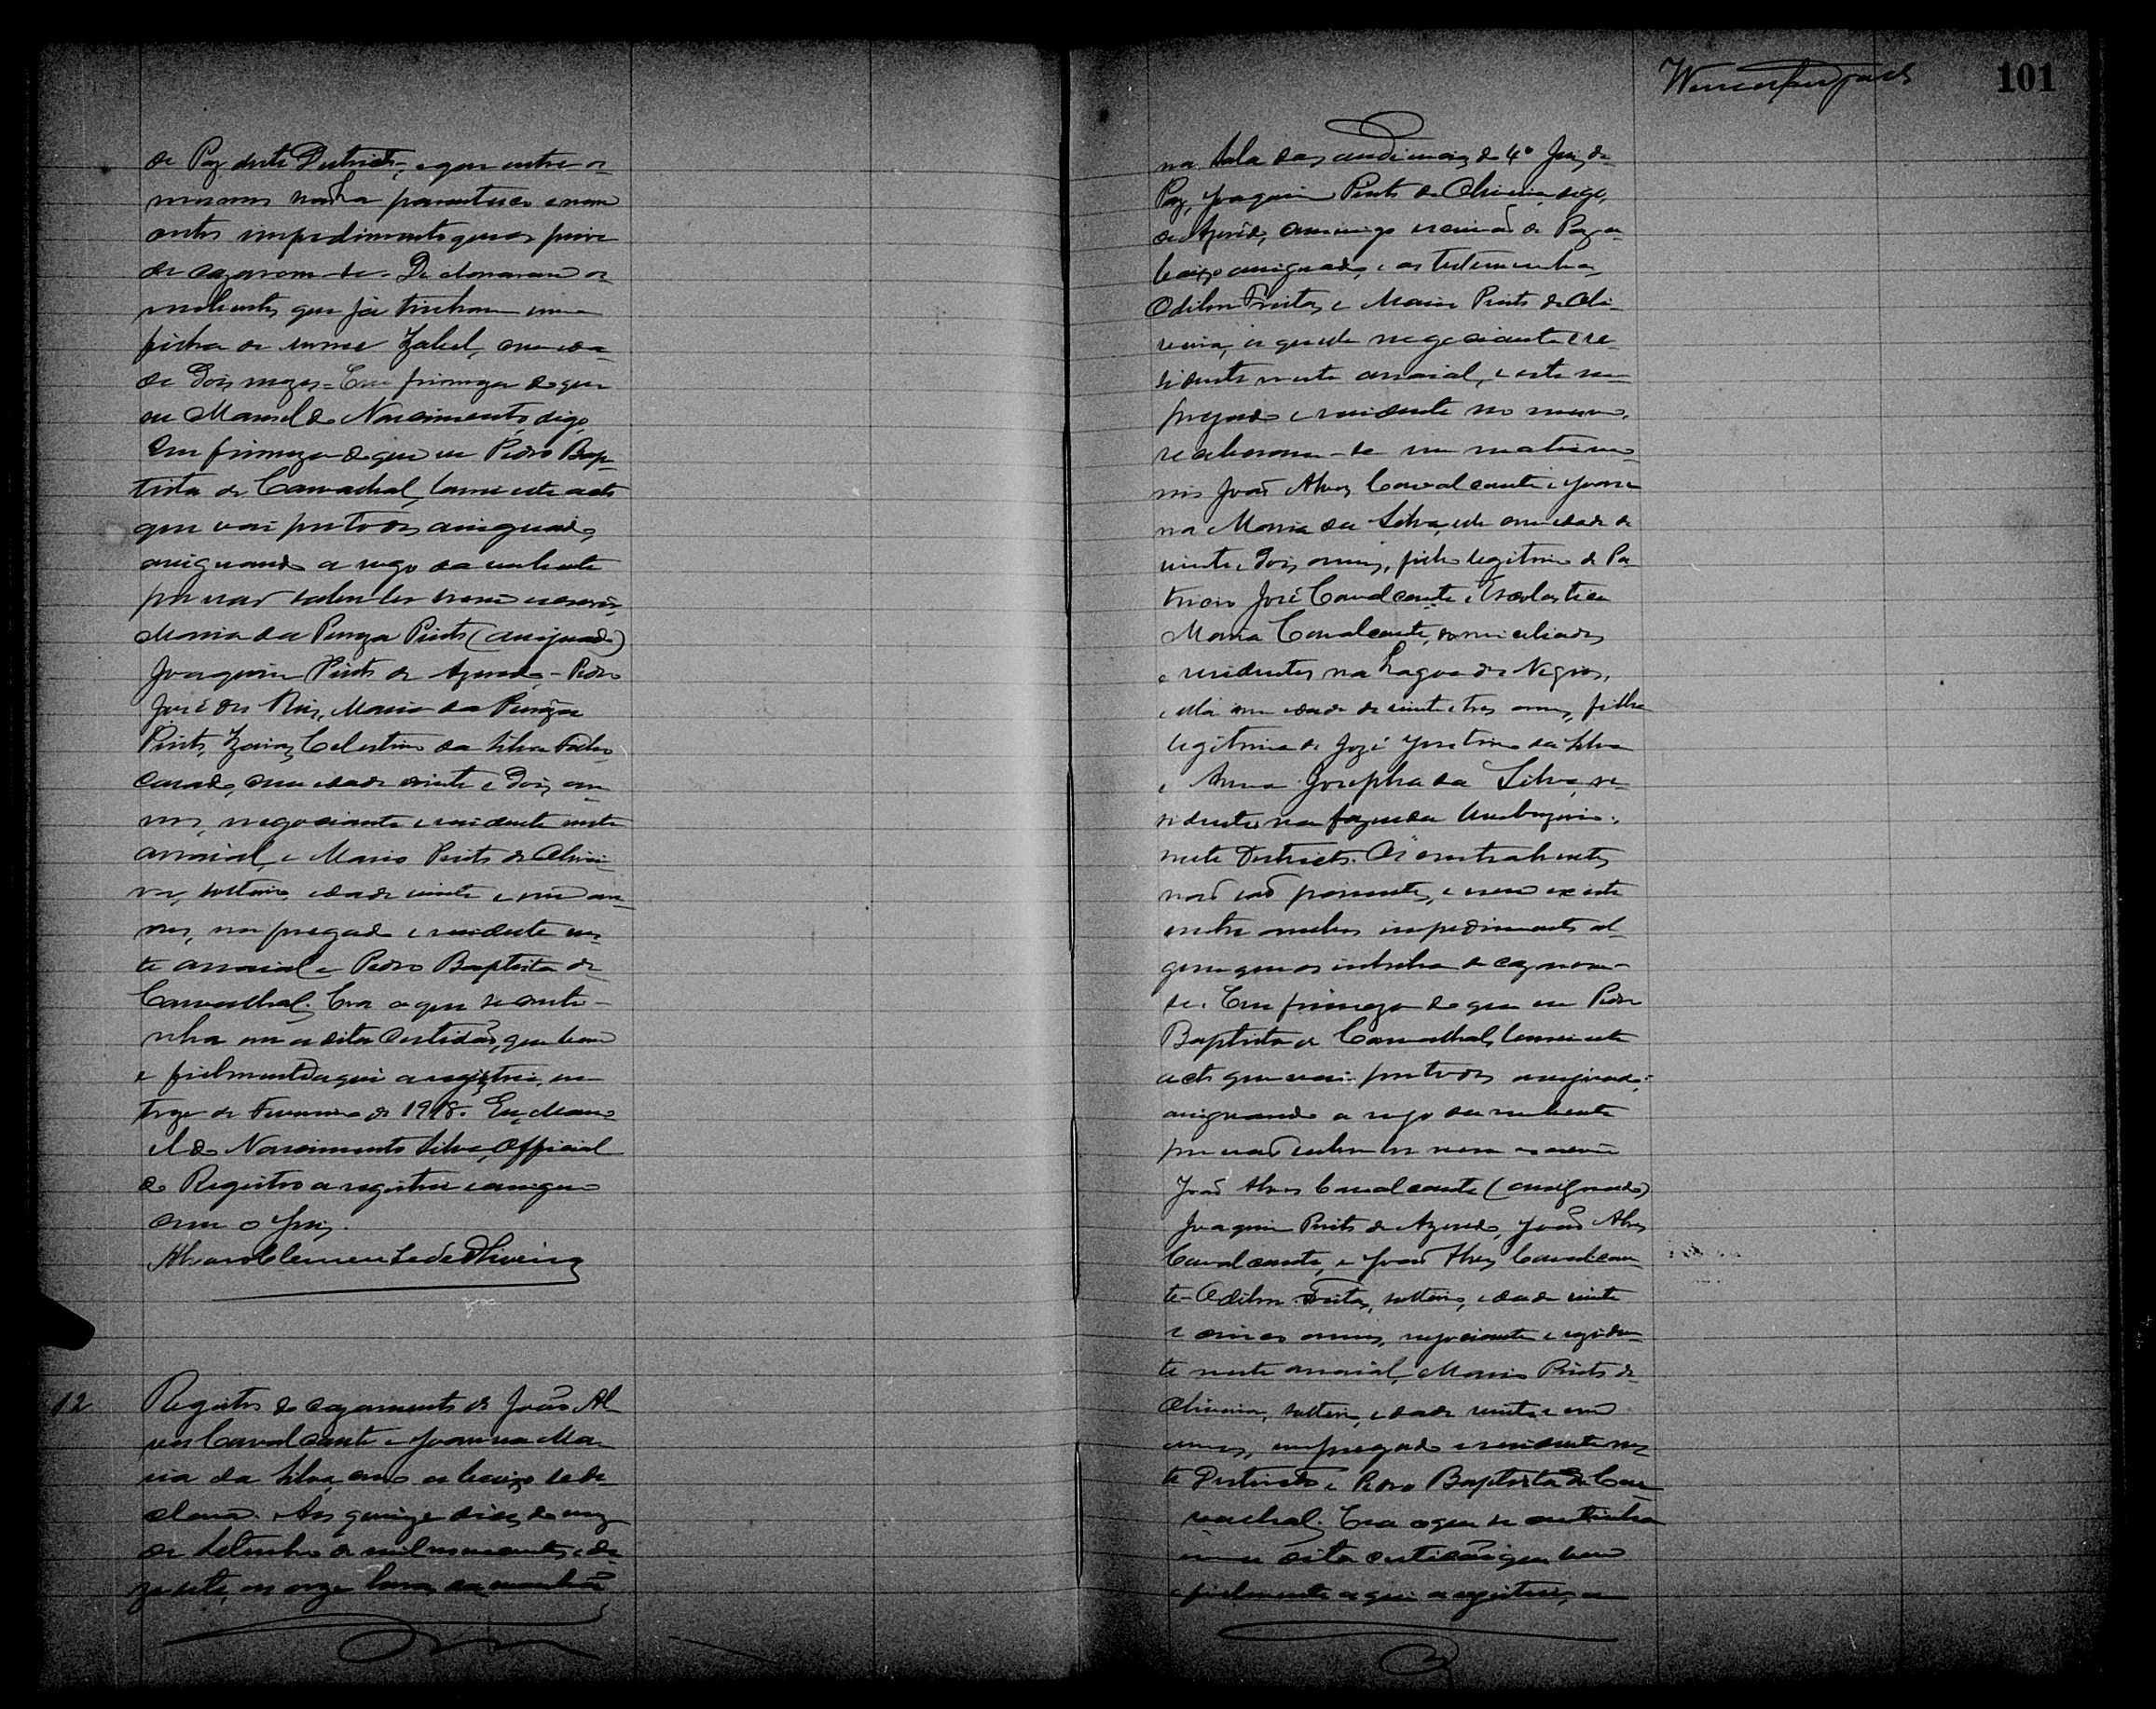 de Paz deste Districto, e que entre os
mesmos não ha parentesco e nem
outro impedimento que os prive
de cazarem-se. Declararam os
nubentes que já tinham uma
filha de nome Izabel, com idade
de dois mezes. Em firmeza do que
eu Manoel do Nascimento, digo,
Em firmeza do que eu Pedro Bap-
tista de Carvalhal, lavrei este acto
que vai por todos assignado,
assignando a rogo da nubente
por não saber ler nem escrever,
Maria da Pureza Pinto (assignado)
Joaquim Pinto de Azevedo - Pedro
José dos Reis, Maria da Pureza
Pinto, Izaias Celestino da Silva Filho
casado, com idade vinte e dois an-
nos, negociante e residente neste
arraial, e Mario Pinto de Olivei-
ra, solteiro, idade vinte e um an-
nos, empregado e residente nes-
te arraial e Pedro Baptista de
Carvalhal. Era o que se conti-
nha em a dita certidão, que bem
e fielmente aqui a registrei, em
treze de Fevereiro de 1918. Eu, Mano-
el do Nascimento Silva, Official
do Registro a registrei e assigno
com o Juiz.
Alvaro Clemente de Oliveira
12
Registro do cazamento de João Al-
ves Cavalcante e Joanna Ma-
ria da Silva, como abaixo se de-
clara. Aos quinze dias do mez
de Setembro de mil novecentos e de-
zesete, as onze horas da manhã
101
na sala das audiencias do 4º Juiz de
Paz, Joaquim Pinto de Oliveira, digo,
de Azevedo, commigo escrivão de Paz a-
baixo assignado, e as testemunhas
Odilon Freitas e Mario Pinto de Oli-
veira, aquelle negociante e re-
sidente neste arraial, e este em-
pregado e residente no mesmo,
receberam-se em matrimo-
nio João Alves Cavalcante e Joan-
na Maria da Silva, elle com idade de
vinte e dois annos, filho legitimo de Pa-
tricio José Cavalcante e Escolastica
Maria Cavalcante, domiciliados
e residentes na Lagoa dos Negros,
e ella com idade de vinte e tres annos, filha
legitima de José Justino da Silva
e Anna Josepha da Silva, re-
sidentes na fazenda
neste Districto. Os contrahentes
não são parentes, e nem existe
entre ambos impedimento al-
gum que os de cazarem-
se. Em firmeza do que eu Pedro
Baptista de Carvalhal, lavrei este
acto que vai por todos assignado,
assignando a rogo da nubente
por não saber ler nem escrever
João Alves Cavalcante (assignado)
Joaquim Pinto de Azevedo, João Alves
Cavalcante, e João Alves Cavalcan-
te - Odilon Freitas, solteiro, idade vinte
e cinco annos, negociante e residen-
te neste arraial, Mario Pinto de
Oliveira, solteiro, idade vinte e um
annos, empregado e residente nes-
te Districto e Pedro Baptista de Car-
valhal. Era o que se continha
em a dita certidão que bem
e fielmente aqui a registrei, em